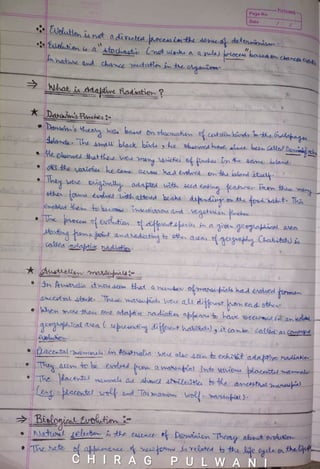 Page No.
Date / /
Evolution is not a directed process in the sense of determinism.
Evolution is a "stochastic (not works on a rule) process" based on chance events
in nature and chance mutation in the organism
⇒ What is Adaptive Radiation ?
★ Darwin's Finches :-
• Darwin's theory was based on observation of certain birds in the Galapagos
Islands. The small black birds, he observed have since been called Darwin's
• He observed that there were many varieties of finches in the same island.
• All the varieties he came across had evolved on the island itself.
• They were originally adapted with seed eating features. From there many
other forms evolved with altered beaks depending on the food habit. This
enabled them to become insectivorous and vegetarian finches
• The process of evolution of different species in a given geographical area
starting from a point and radiating to other areas of geography (habitats) is
called adaptive radiation
★ Australian marsupials :-
• In Australia it was seen that a number of marsupials had evolved from an
ancestral stock. These marsupials were all different from each other
• When more than one adaptive radiation appears to have occurred in an isolated
geographical area (representing different habitats), it can be called as convergent
evolution
• Placental mammals in Australia were also seen to exhibit adaptive radiation
• They seem to be evolved from a marsupial into various placental mammals
• The placental mammals also shared similarities to the ancestral marsupial
(eg:- placental wolf and Tasmanian wolf - marsupial).
⇒ Biological Evolution :-
• Natural selection is the essence of Darwinian Theory about evolution.
• The rate of appearance of new forms is related to the life cycle or the life
CHIRAG PULWANI